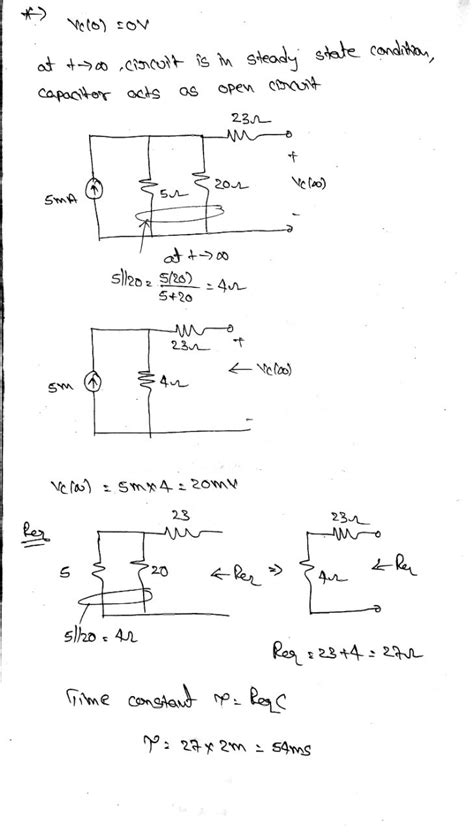 *→
Vc(0) = 0V
at t→∞, circuit is in steady state condition,
capacitor acts as open circuit
23Ω
+
5mA
5Ω
20Ω
Vc(∞)
-
at t→∞
5||20 = 5(20)/5+20 = 4Ω
23Ω
+
5m
4Ω
← Vc(∞)
-
Vc(∞) = 5m×4 = 20mV
Req
23
23Ω
5
20
← Req ⇒
4Ω
← Req
5||20 = 4Ω
Req = 23+4 = 27Ω
Time constant τ = Req C
τ = 27 × 2m = 54ms